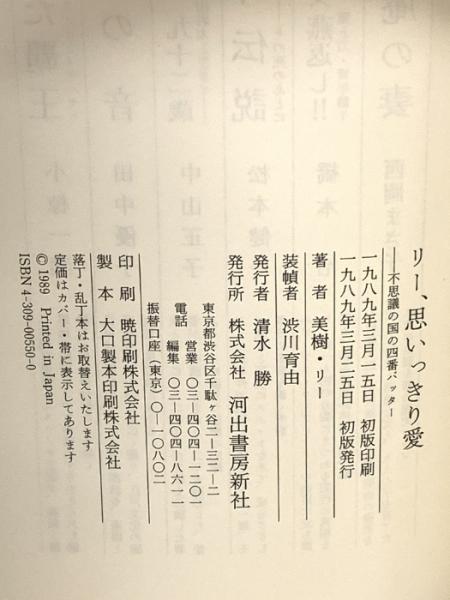 リー、思いっきり愛
不思議の国の四番バッター
一九八九年三月一五日　初版印刷
一九八九年三月二五日　初版発行
著　者　美樹・リー
装幀者　渋川育由
発行者　清水　勝
発行所　株式会社　河出書房新社
東京都渋谷区千駄ヶ谷二―三二―二
電話　営業　〇三―四〇四―一二〇一
編集　〇三―四〇四―八六一一
振替口座（東京）〇―一〇八〇二
印　刷　暁印刷株式会社
製　本　大口製本印刷株式会社
落丁・乱丁本はお取替えいたします
定価はカバー・帯に表示してあります
© 1989　Printed in Japan
ISBN 4-309-00550-0